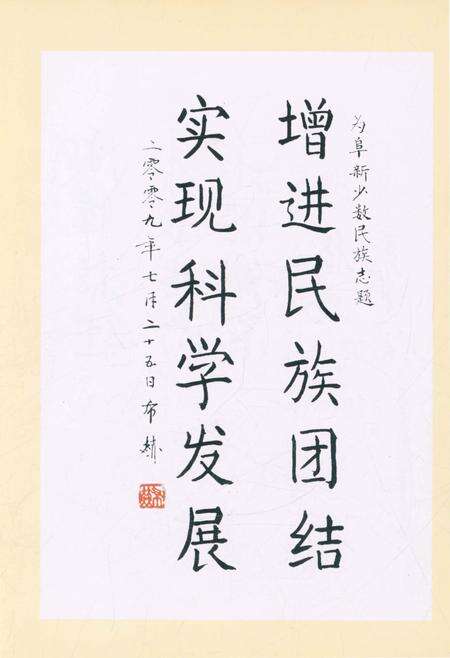 为阜新少数民族志题
增进民族团结
实现科学发展
二零零九年七月二十五日 布赫